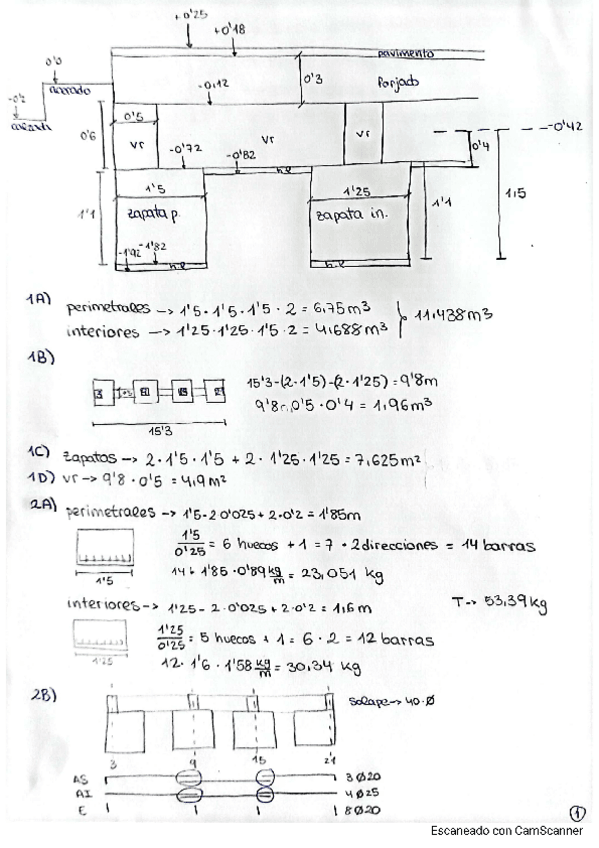 +0'25
+0'18
pavimento
0'0
acerado
0'3
Forjado
-0'2
-0'12
0'5
0'6
vr
vr
vr
-0'42
-0'72
-0'82
0'4
h.l
1'5
1'25
1'1
zapata p.
zapata in.
1'1
1,5
-1'92
-1'82
h.l
h.l
1A) perimetrales -> 1'5 · 1'5 · 1'5 · 2 = 6,75 m³
11,438 m3
interiores -> 1'25 · 1'25 · 1'5 · 2 = 4,688 m³
1B)
15'3-(2·1'5)-(2·1'25) = 9'8m
9'8 · 0'5 · 0'4 = 1,96 m³
15'3
1C) zapatas -> 2 · 1'5 · 1'5 + 2 · 1'25 · 1'25 = 7,625 m²
1D) vr -> 9'8 · 0'5 = 4,9 m²
2A) perimetrales -> 1'5 - 2·0'025 + 2·0'2 = 1'85m
1'5/0'25 = 6 huecos + 1 = 7 · 2 direcciones = 14 barras
1'5
14 · 1'85 · 0'89 kg/m = 23,051 kg
interiores -> 1'25 - 2·0'025 + 2·0'2 = 1,6 m
T -> 53,39 kg
1'25/0'25 = 5 huecos + 1 = 6 · 2 = 12 barras
1'25
12 · 1'6 · 1'58 kg/m = 30,34 kg
2B)
solape -> 40·Ø
3 9 15 21
AS 3Ø20
AI 4Ø25
E 8Ø20
1
Escaneado con CamScanner